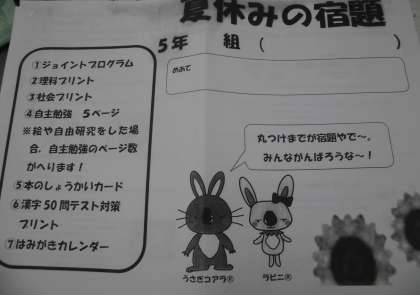 夏休みの宿題
5年 組 ( )
めあて
①ジョイントプログラム
②理科プリント
③社会プリント
④自主勉強 5ページ
※絵や自由研究をした場
合、自主勉強のページ数
がへります!
⑤本のしょうかいカード
⑥漢字50問テスト対策
プリント
⑦はみがきカレンダー
丸つけまでが宿題やで～。
みんながんばろうな～!
うさぎコアラ®
ラビニ®